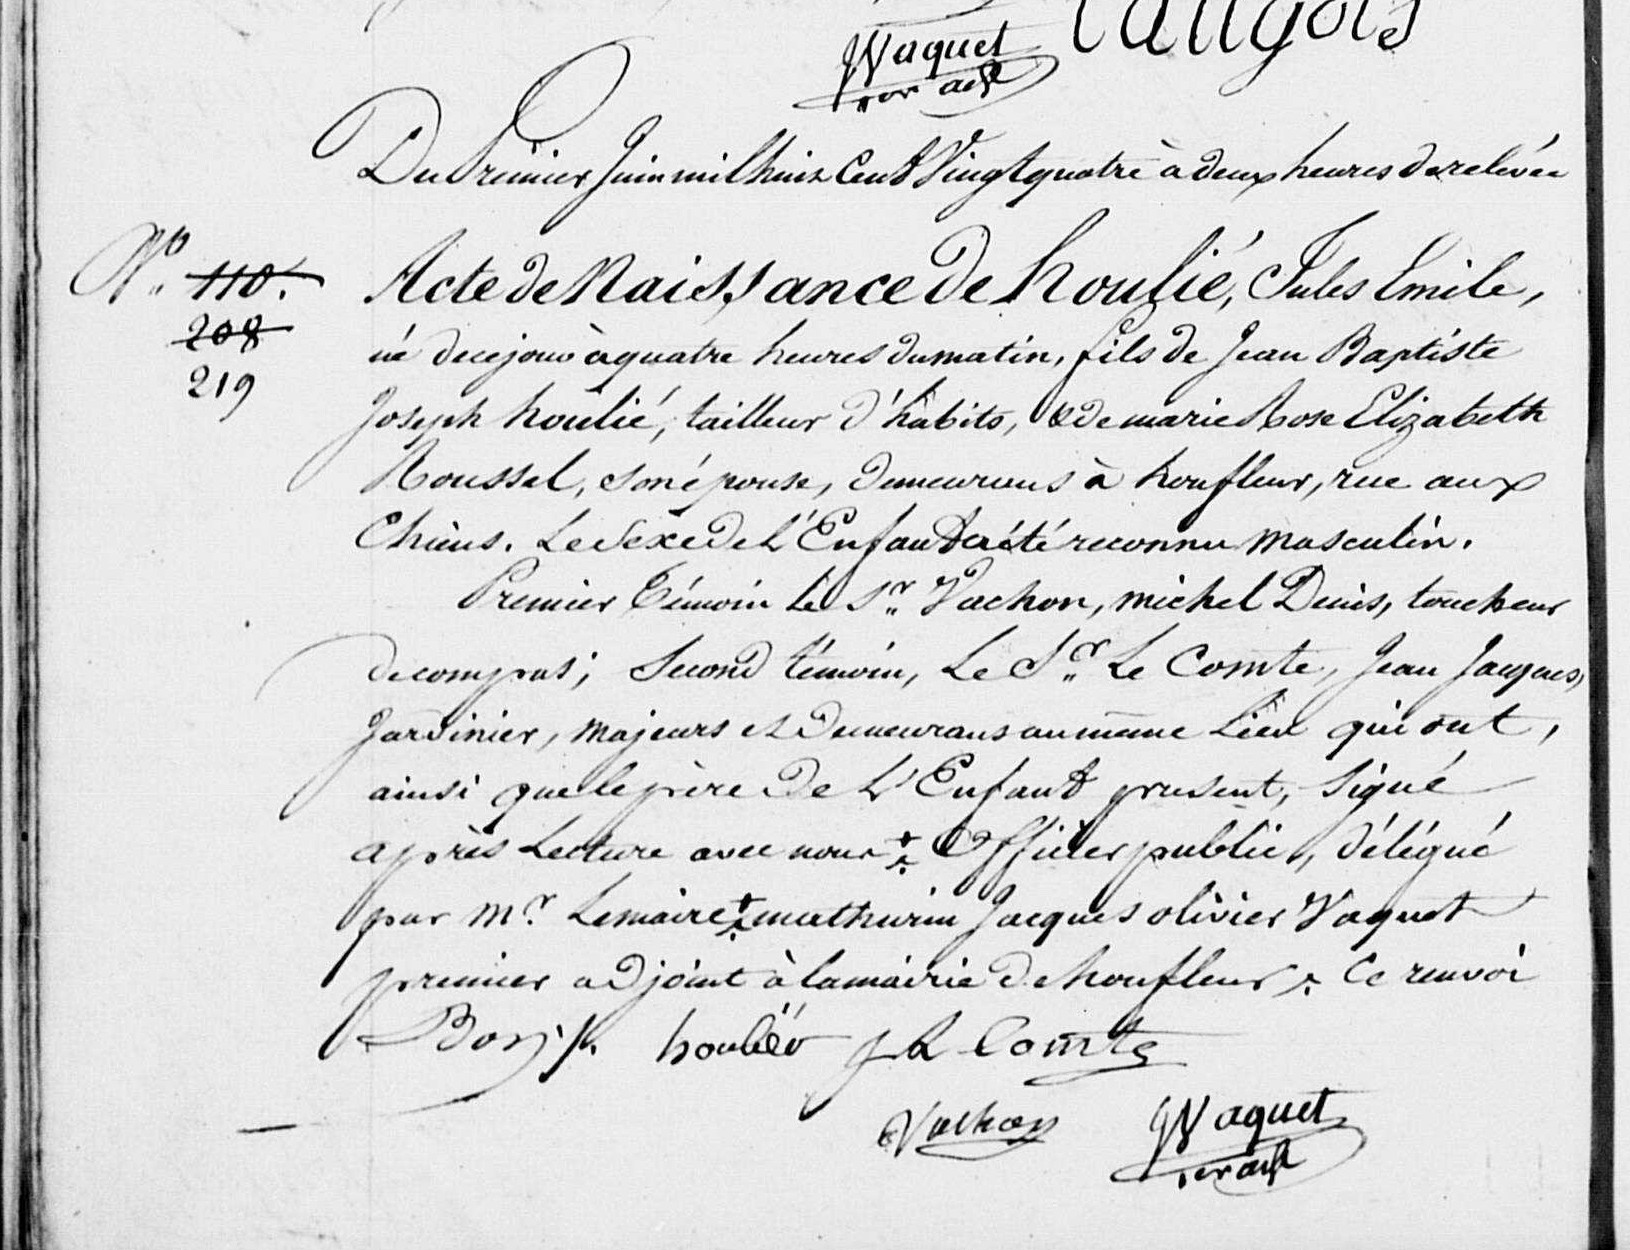 Waquet
1er adjt
Langois
Du Premier Juin mil huit Cent Vingt quatre à deux heures de relevée
No. 110.
208
219
Acte de Naissance de houlié, Jules Emile,
né de ce jour à quatre heures du matin, fils de Jean Baptiste
Joseph houlié, tailleur d'habits, & de marie Rose Elizabeth
Roussel, son épouse, demeurans à honfleur, rue aux
Chiens. Le Sexe de L'Enfant a été reconnu masculin.
Premier Témoin Le Sr. Vachon, michel Denis, toucheur
de compas; Second témoin, Le Sr. Le Comte, Jean Jacques,
Jardinier, majeurs et Demeurans au même Lieu qui ont,
ainsi que le père De L'Enfant présent, Signé
après Lecture avec nous Officier public, délégué
par Mr. Lemaire mathurin Jacques olivier Vaquet
premier adjoint à la mairie de honfleur. Ce renvoi
Bon /. houlié J L Comte
Vachon Waquet
1er adjt